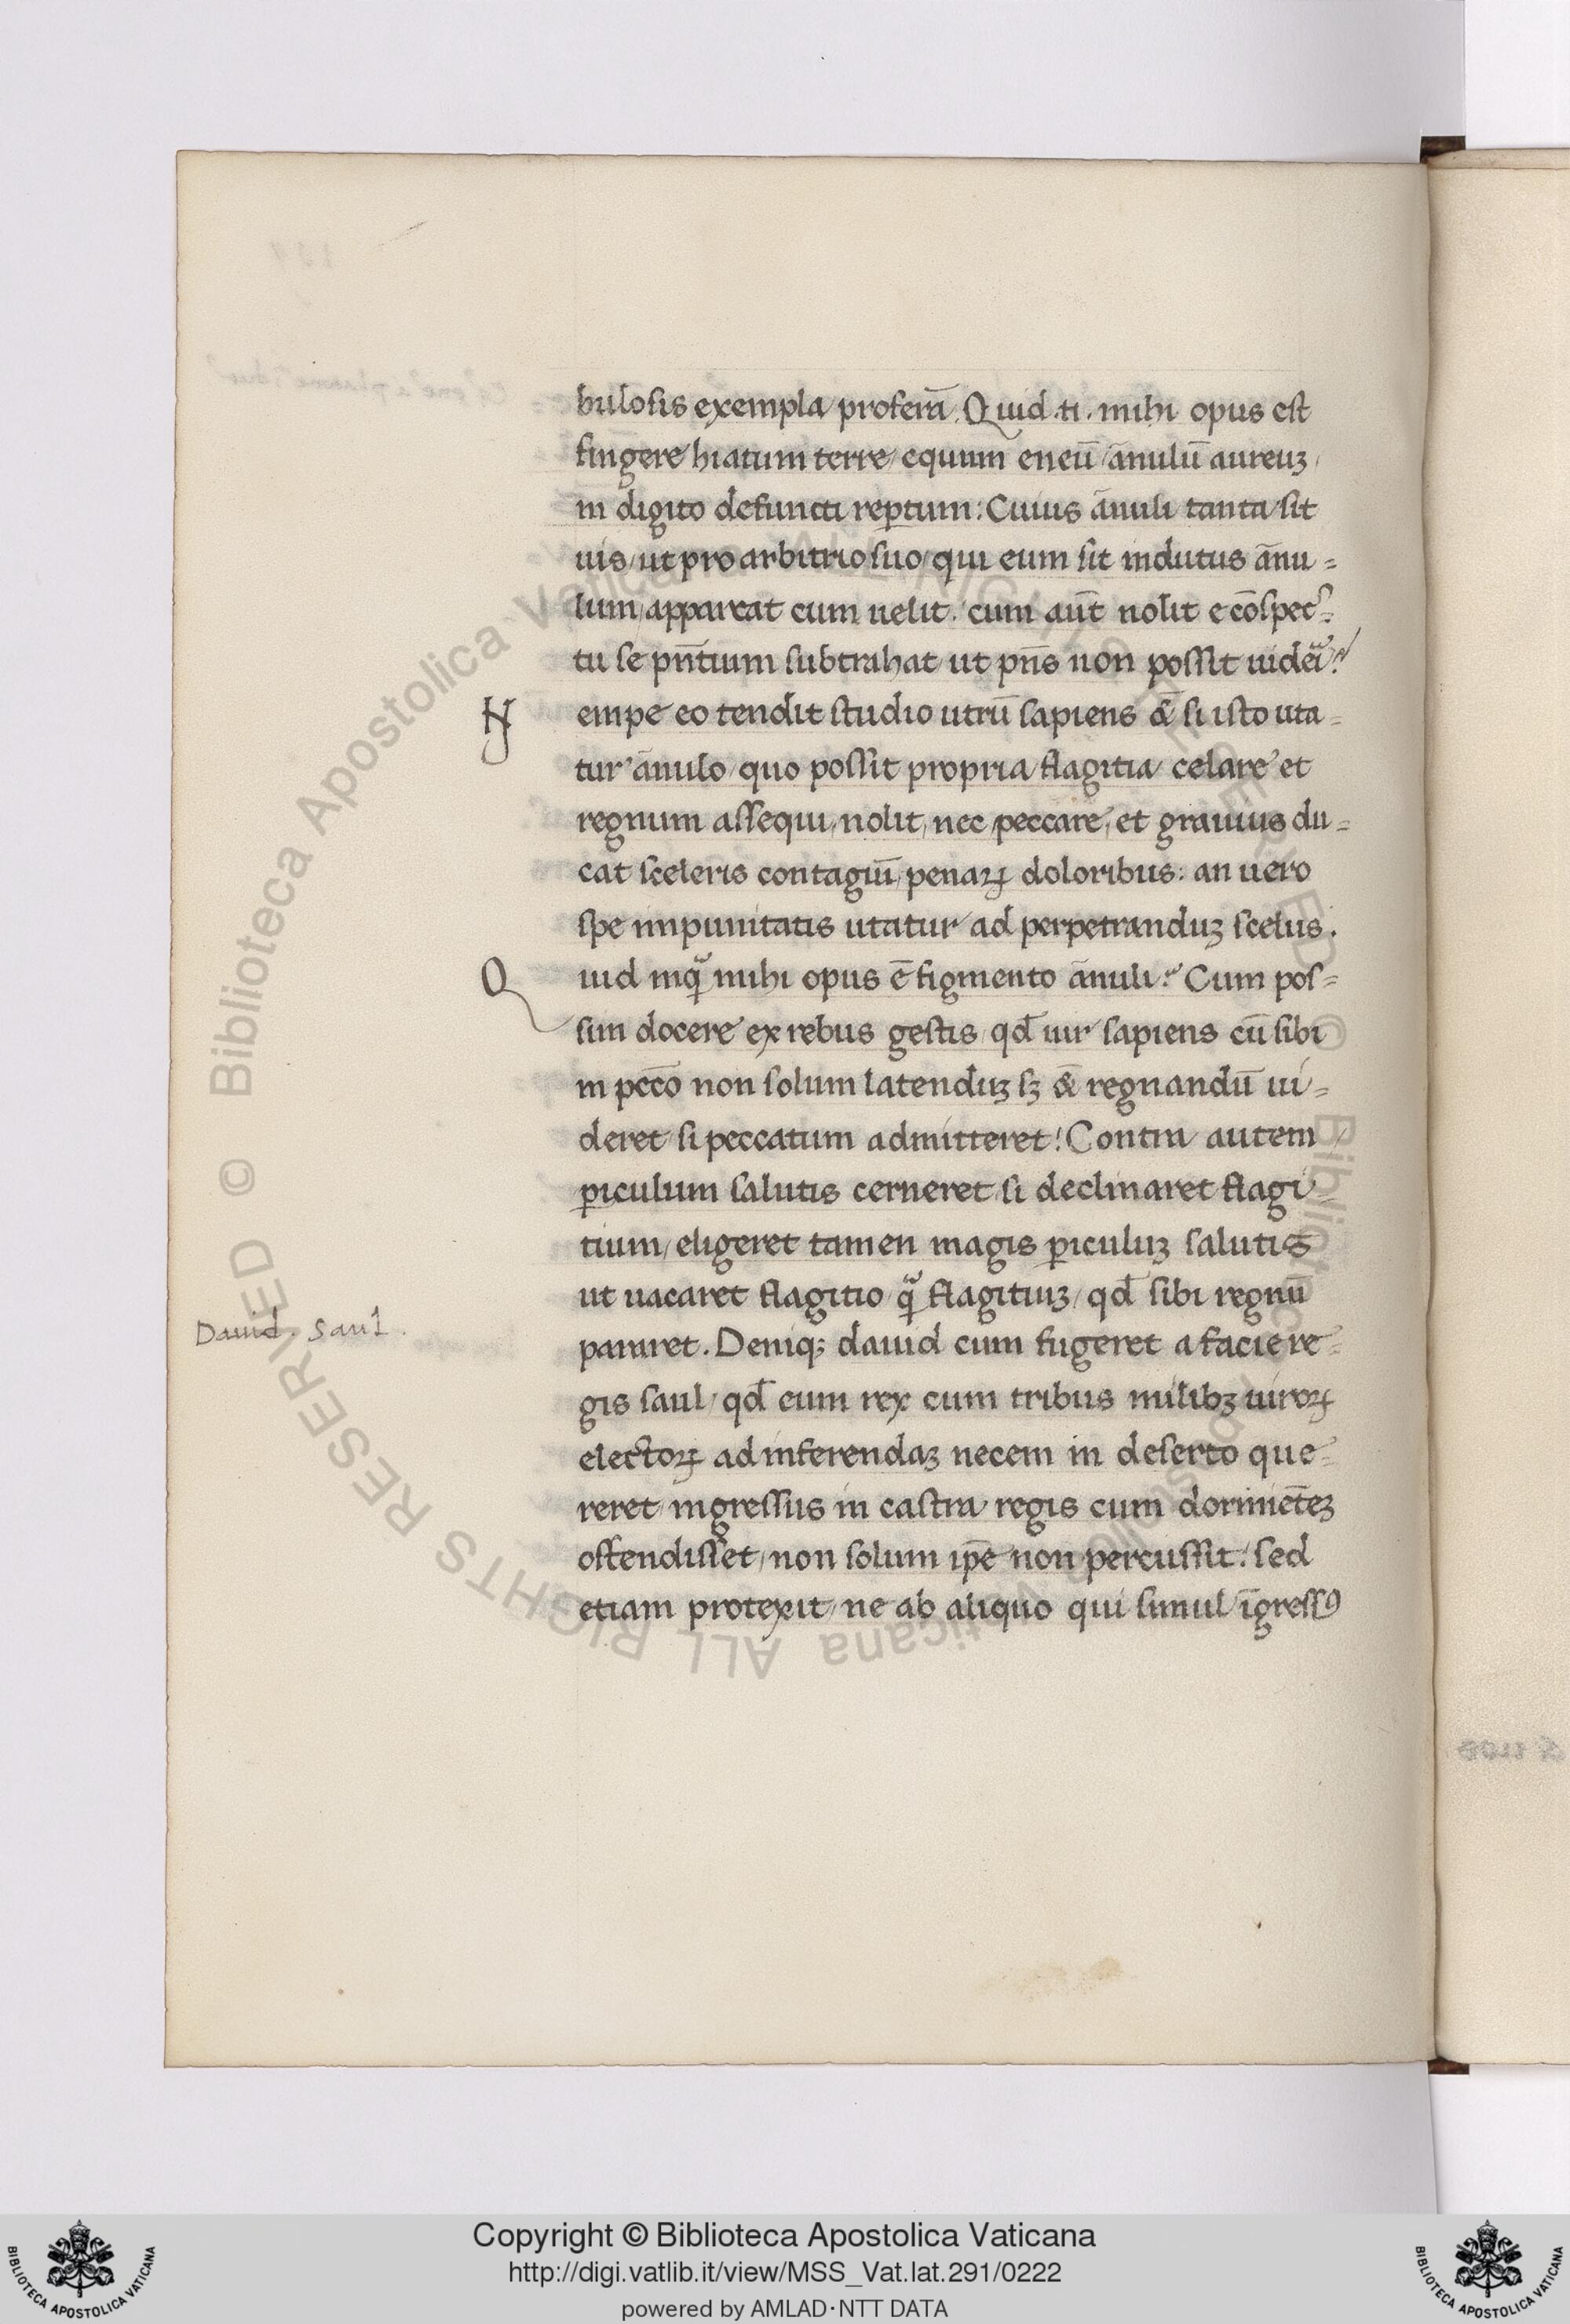 bulosis exempla proferā. Quid .n. mihi opus est
fingere hiatum terre equum eneū ānulū aureuꝫ
in digito defuncti reꝑtum: Cuius ānuli tanta sit
uis ut pro arbitrio suo qui eum sit indutus ānu=
lum appareat cum uelit. cum aūt nolit e cōspec=
tu se pn̄tium subtrahat ut pn̄s non possit uideri?
Nempe eo tendit studio utrū sapiens & si isto uta=
tur ānulo quo possit propria flagitia celare et
regnum assequi nolit nec peccare et grauius du=
cat sceleris contagiū penaꝝ doloribus: an uero
spe impunitatis utatur ad perpetranduꝫ scelus.
Quid inqͣ mihi opus ē figmento ānuli? Cum pos=
sim docere ex rebus gestis qđ uir sapiens cū sibi
in pcc̄o non solum latenduꝫ sꝫ & regnandū ui=
deret si peccatum admitteret! Contra autem
ꝑiculum salutis cerneret si declinaret flagi=
tium eligeret tamen magis ꝑiculuꝫ salutis
ut uacaret flagitio qͣ flagitiuꝫ qđ sibi regnū
pararet. Deniqꝫ dauid cum fugeret a facie re=
Dauid. Saul.
gis saul qđ eum rex cum tribus milibꝫ uiroꝝ
electoꝝ ad inferendaꝫ necem in deserto que=
reret ingressus in castra regis cum dormiēteꝫ
ostendisset non solum ip̄e non percussit: sed
etiam protexit ne ab aliquo qui simul īgressꝰ
Copyright © Biblioteca Apostolica Vaticana
http://digi.vatlib.it/view/MSS_Vat.lat.291/0222
powered by AMLAD·NTT DATA
BIBLIOTECA APOSTOLICA VATICANA
BIBLIOTECA APOSTOLICA VATICANA
© Biblioteca Apostolica Vaticana ALL RIGHTS RESERVED
© Biblioteca Apostolica Vaticana ALL RIGHTS RESERVED